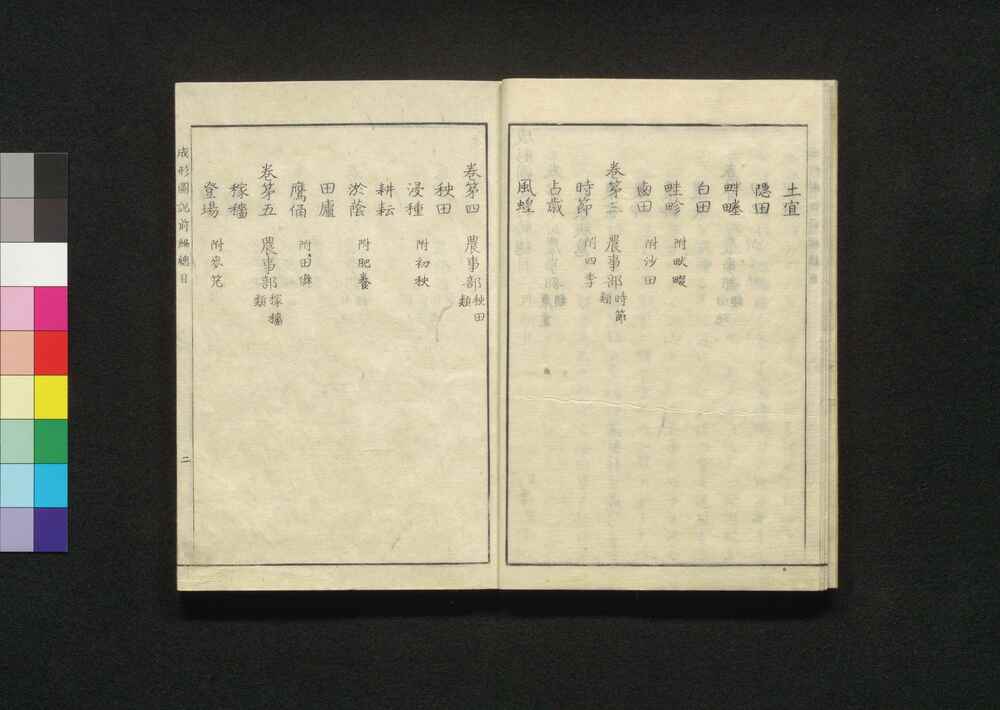 土宜
隠田
畔塍
白田
畦畛 附畎畷
鹵田 附沙田
卷第三 農事部 時節類
時節 附四季
占歳
風蝗
卷第四 農事部 秧田類
秧田
浸種 附初秧
耕耘
淤蔭 附肥養
田廬
鷹俑 附田儺
卷第五 農事部 稼穡類
稼穡
登場 附麥笂
成形圖説前編總目
二